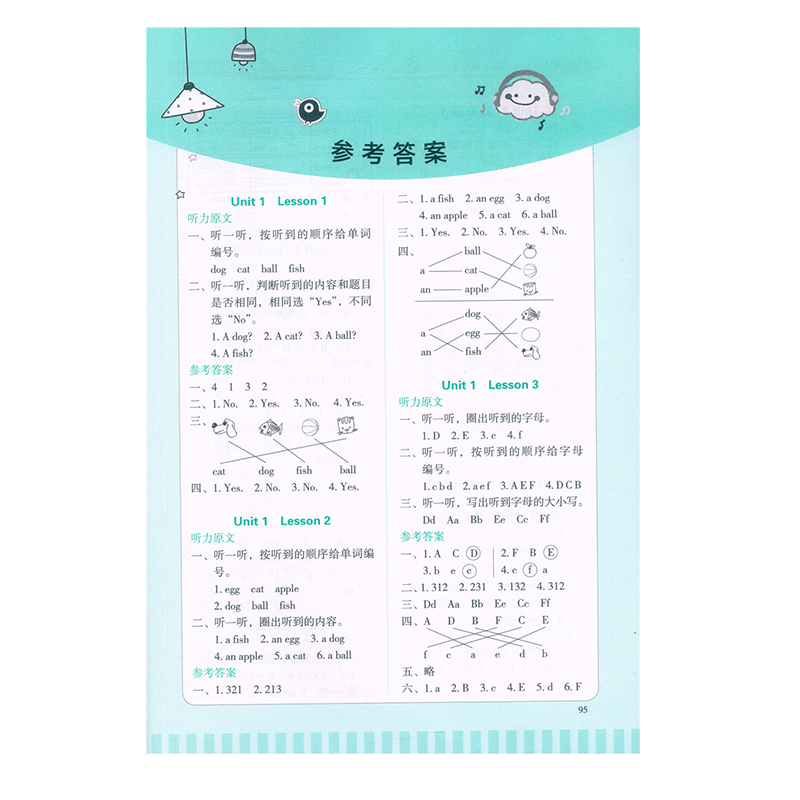 参考答案
Unit 1 Lesson 1
听力原文
一、听一听，按听到的顺序给单词
编号。
dog cat ball fish
二、听一听，判断听到的内容和题目
是否相同，相同选“Yes”，不同
选“No”。
1. A dog? 2. A cat? 3. A ball?
4. A fish?
参考答案
一、4 1 3 2
二、1. No. 2. Yes. 3. No. 4. Yes.
三、
cat dog fish ball
四、1. Yes. 2. No. 3. No. 4. Yes.
Unit 1 Lesson 2
听力原文
一、听一听，按听到的顺序给单词编
号。
1. egg cat apple
2. dog ball fish
二、听一听，圈出听到的内容。
1. a fish 2. an egg 3. a dog
4. an apple 5. a cat 6. a ball
参考答案
一、1. 321 2. 213
二、1. a fish 2. an egg 3. a dog
4. an apple 5. a cat 6. a ball
三、1. Yes. 2. No. 3. Yes. 4. No.
四、
ball
a cat
an apple
dog
a egg
an fish
Unit 1 Lesson 3
听力原文
一、听一听，圈出听到的字母。
1. D 2. E 3. c 4. f
二、听一听，按听到的顺序给字母
编号。
1. c b d 2. a e f 3. A E F 4. D C B
三、听一听，写出听到字母的大小写。
Dd Aa Bb Ee Cc Ff
参考答案
一、1. A C D 2. F B E
3. b e c 4. c f a
二、1. 312 2. 231 3. 132 4. 312
三、Dd Aa Bb Ee Cc Ff
四、A D B F C E
f c a e d b
五、略
六、1. a 2. B 3. c 4. E 5. d 6. F
95